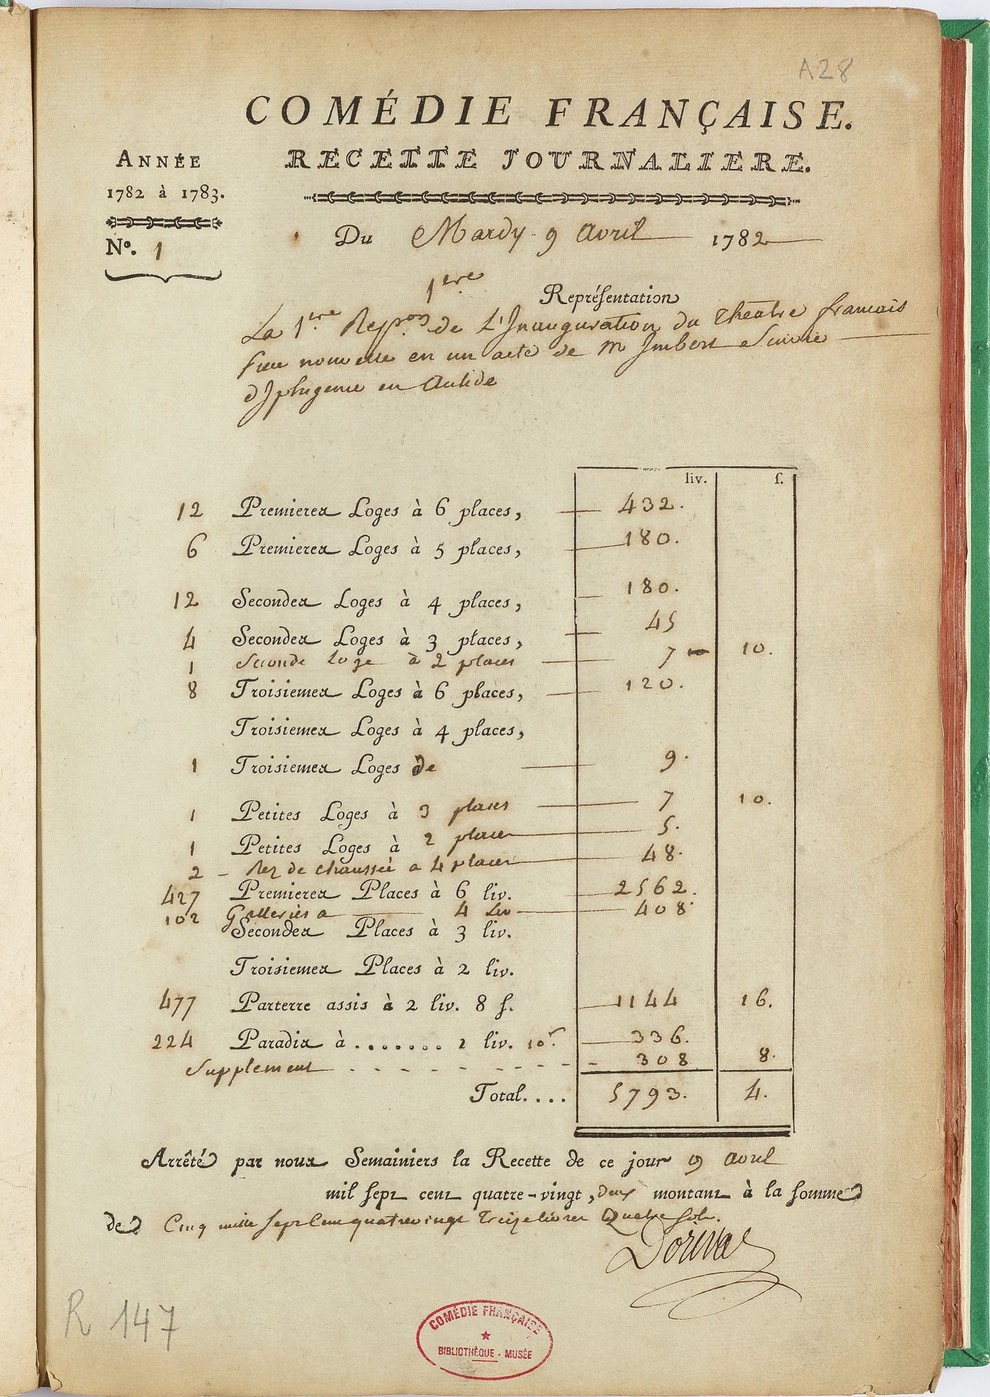 A28
COMÉDIE FRANÇAISE.
ANNÉE
RECETTE JOURNALIERE.
1782 à 1783.
Nº. 1
Du Mardy 9 Avril 1782
1ere
Représentation
La 1ere Repon de L'Inauguration du Theatre francais
piece nouvelle en un acte de M Imbert Suivie
d Iphigenie en Aulide
liv. s.
12 Premieres Loges à 6 places, 432.
6 Premieres Loges à 5 places, 180.
12 Secondes Loges à 4 places, 180.
4 Secondes Loges à 3 places, 45
1 Seconde loge à 2 places 7 10.
8 Troisiemes Loges à 6 places, 120.
Troisiemes Loges à 4 places,
1 Troisiemes Loges de 9.
1 Petites Loges à 3 places 7 10.
1 Petites Loges à 2 places 5.
2 - Rez de chaussée a 4 places 48.
427 Premieres Places à 6 liv. 2562.
102 Galleries a 4 Liv 408
Secondes Places à 3 liv.
Troisiemes Places à 2 liv.
477 Parterre assis à 2 liv. 8 s. 1144 16.
224 Paradis à ....... 1 liv. 10s. 336.
Supplement - - - - - - - - 308 8.
Total.... 5793. 4.
Arrêté par nous Semainiers la Recette de ce jour 9 avril
mil sept cent quatre-vingt, deux montant à la somme
de Cinq mille Sept Cent quatrevingt Treize livres Quatre sols.
Dorival
R 147
COMÉDIE FRANÇAISE
BIBLIOTHÈQUE - MUSÉE